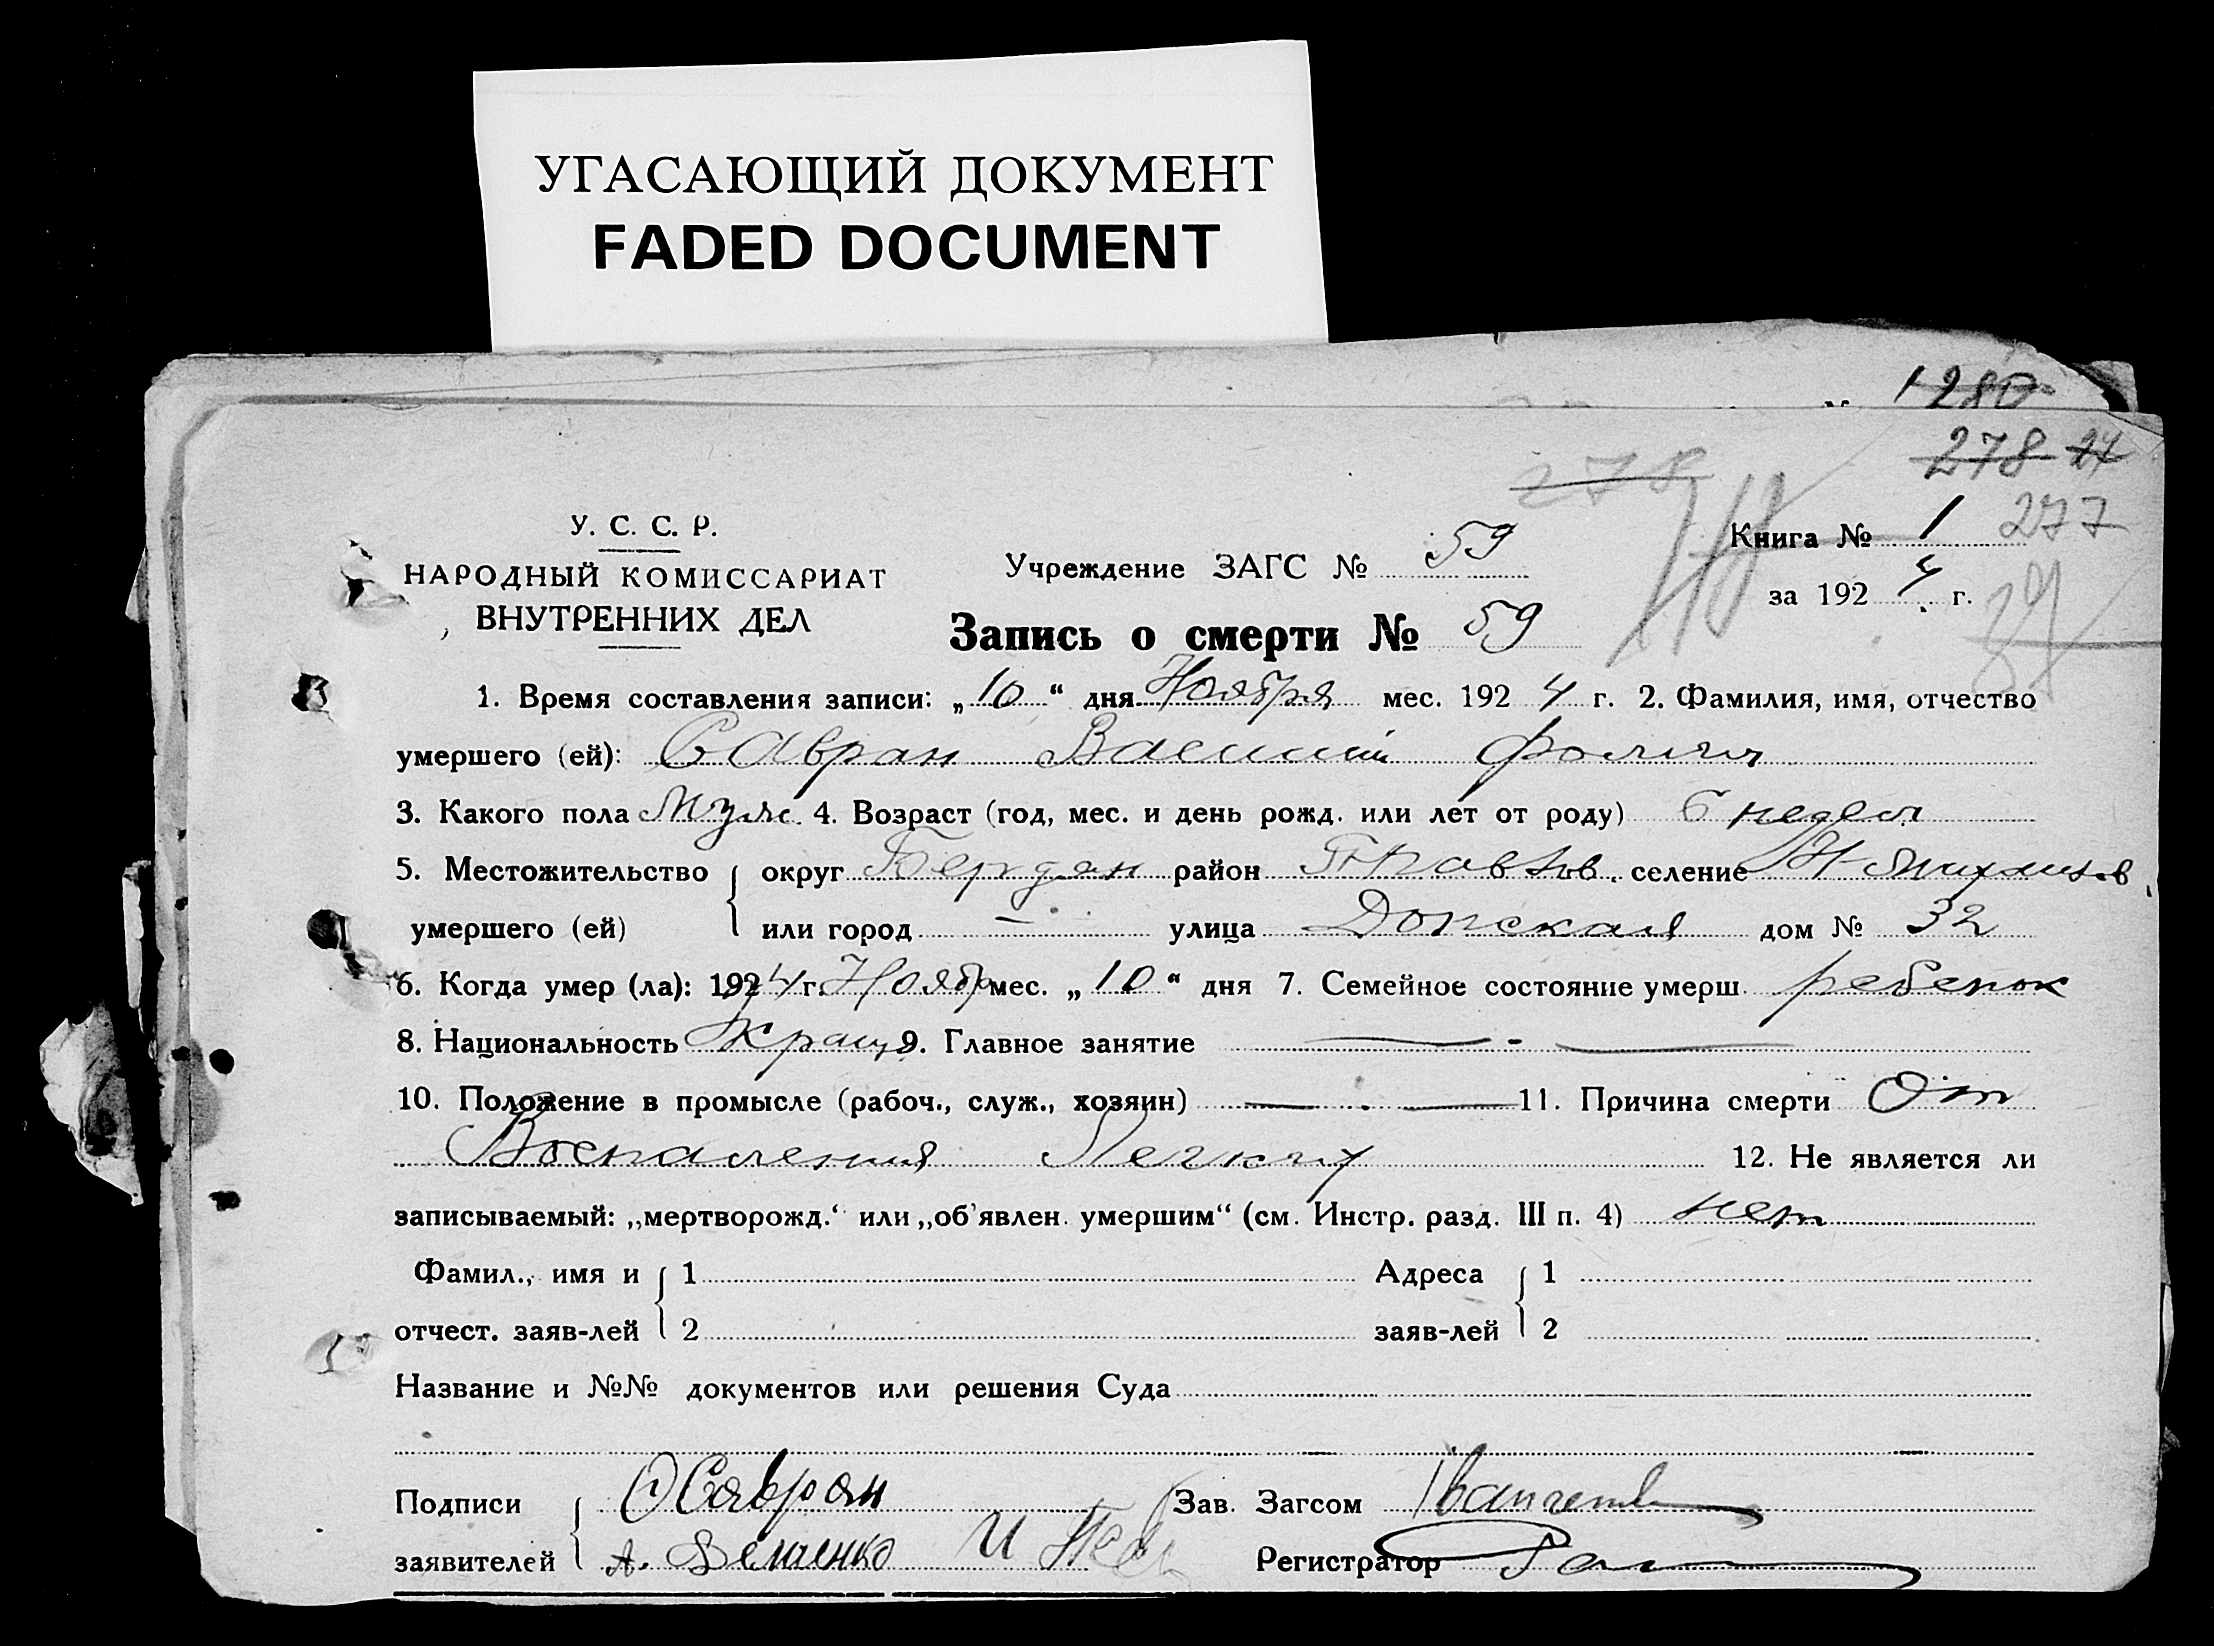 УГАСАЮЩИЙ ДОКУМЕНТ
FADED DOCUMENT
1280
278 24
278
У. С. С. Р.
Книга № 1 277
НАРОДНЫЙ КОМИССАРИАТ
Учреждение ЗАГС № 59
ВНУТРЕННИХ ДЕЛ
за 1924 г.
Запись о смерти № 59
1. Время составления записи: „10“ дня Ноября мес. 1924 г. 2. Фамилия, имя, отчество
умершего (ей): Савран Василий Фомич
3. Какого пола Муж. 4. Возраст (год, мес. и день рожд. или лет от роду) 6 недел
5. Местожительство округ Бердян район селение
умершего (ей) или город — улица Донская дом № 32
6. Когда умер (ла): 1924 г. Ноябр мес. „10“ дня 7. Семейное состояние умерш. ребенок
8. Национальность Украц 9. Главное занятие — . —
10. Положение в промысле (рабоч., служ., хозяин) — . — 11. Причина смерти От
Воспаления Легких 12. Не является ли
записываемый: „мертворожд.“ или „об’явлен. умершим“ (см. Инстр. разд. III п. 4) нет
Фамил., имя и 1 Адреса 1
отчест. заяв-лей 2 заяв-лей 2
Название и №№ документов или решения Суда
Подписи Савран Зав. Загсом
заявителей А. Регистратор